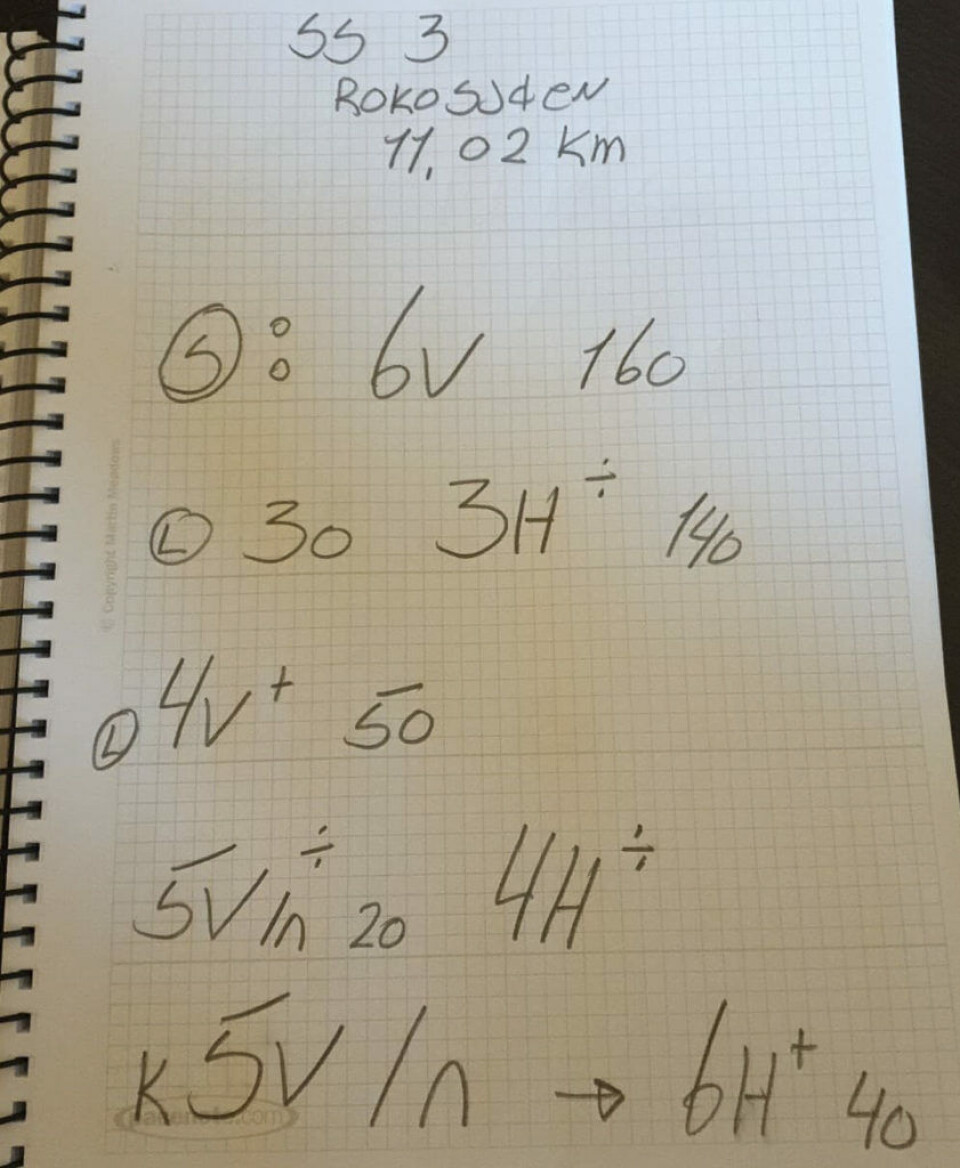 SS 3
ROKOSJØEN
11,02 Km
Ⓢ: 6V 160
Ⓛ 30 3H÷ 140
Ⓛ 4V+ 50
5V/n÷ 20 4H÷
K5V/n → 6H+ 40